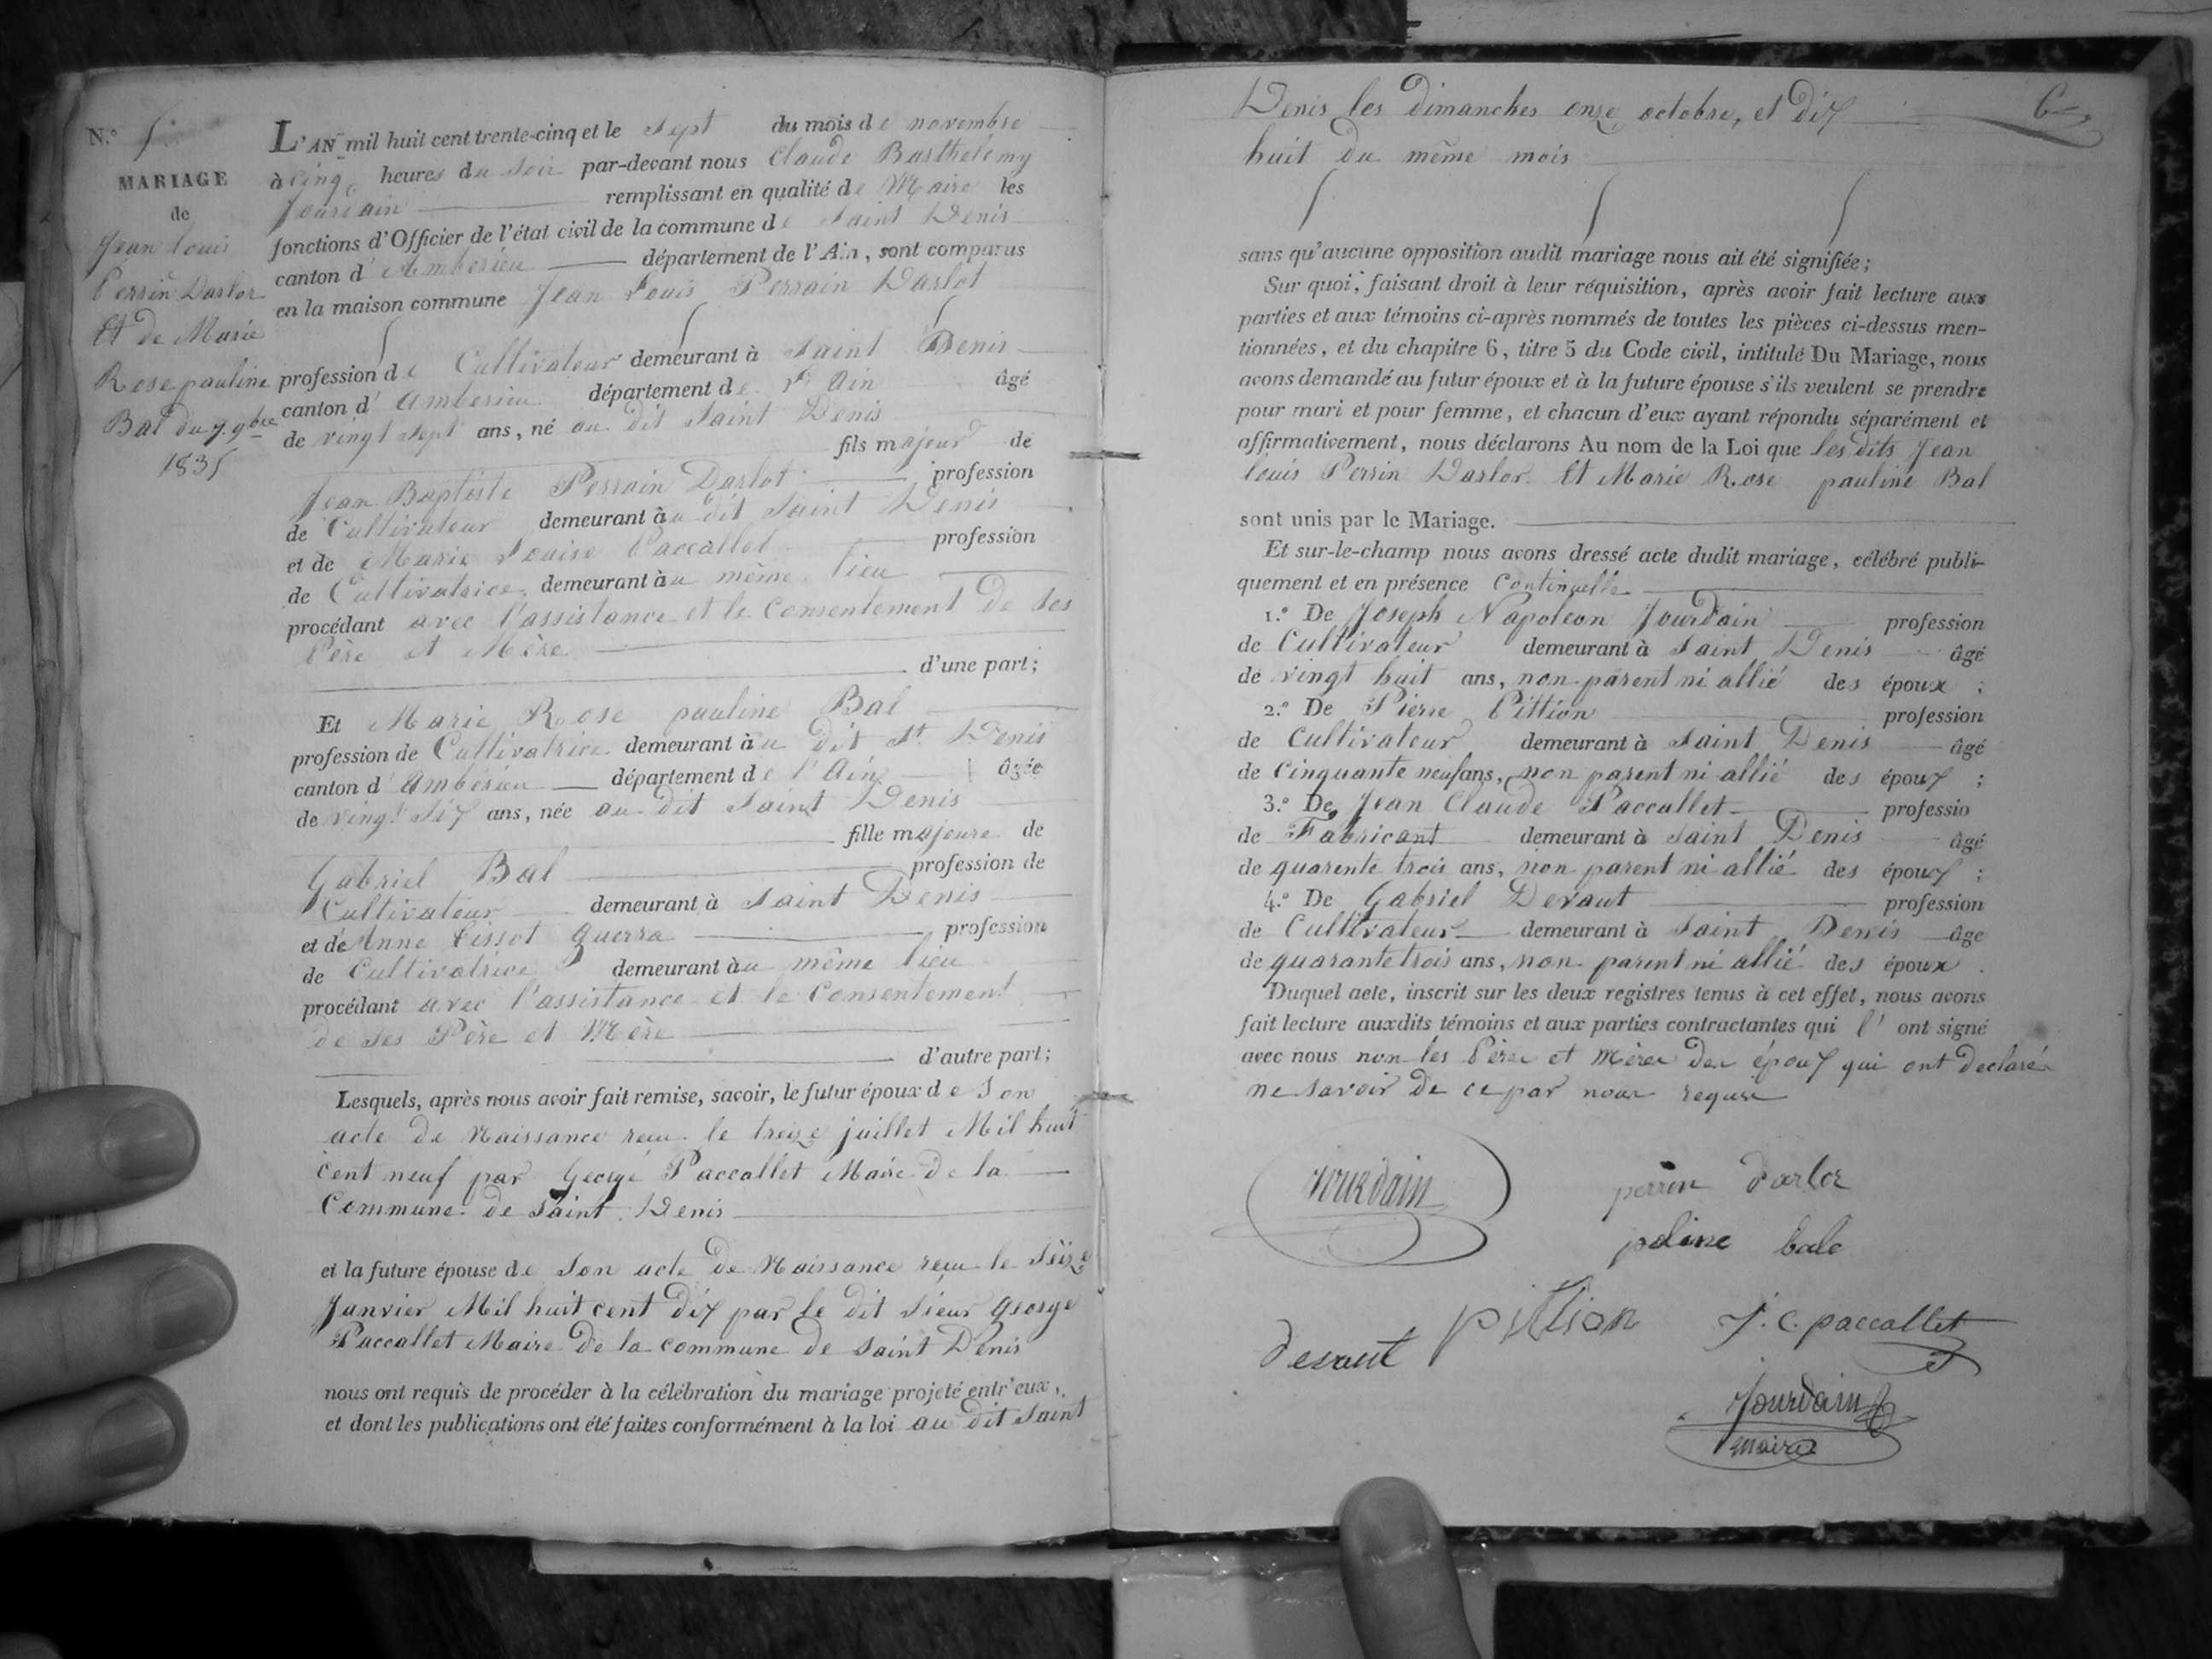 N.° 5
MARIAGE
de
Jean Louis
Perrin Darlor
Et de Marie
Rose pauline
Bal du 7. 9bre
1835
L'AN mil huit cent trente-cinq et le Sept du mois de novembre
à cinq heures du Soir par-devant nous Claude Barthélemy
Jourdain remplissant en qualité de Maire les
fonctions d'Officier de l'état civil de la commune de Saint Denis
canton d'Ambérieu département de l'Ain, sont comparus
en la maison commune Jean Louis Perrain Darlot
profession de Cultivateur demeurant à Saint Denis
canton d'Amberieu département de l'Ain âgé
de vingt Sept ans, né au dit Saint Denis
fils majeur de
Jean Baptiste Perrain Darlot profession
de Cultivateur demeurant àu dit Saint Denis
et de Marie Louise Paccallet profession
de Cultivatrice demeurant àu même lieu
procédant avec l'assistance et le Consentement De Ses
Père et Mère
d'une part;
Et Marie Rose pauline Bal
profession de Cultivatrice demeurant àu dit St Denis
canton d'Ambérieu département de l'Ain âgée
de vingt Six ans, née au dit Saint Denis
fille majeure de
Gabriel Bal profession de
Cultivateur demeurant à Saint Denis
et de Anne Tissot Guerra profession
de Cultivatrice demeurant àu même lieu
procédant avec l'assistance et le Consentement
de Ses Père et Mère
d'autre part;
Lesquels, après nous avoir fait remise, savoir, le futur époux de Son
acte de Naissance reçu le treize juillet Mil huit
cent neuf par George Paccallet Maire de la
Commune de Saint Denis
et la future épouse de Son acte de Naissance reçu le Seize
Janvier Mil huit cent dix par le dit Sieur George
Paccallet Maire de la commune de Saint Denis
nous ont requis de procéder à la célébration du mariage projeté entr'eux,
et dont les publications ont été faites conformément à la loi au dit Saint
6
Denis les dimanches onze octobre, et dix
huit du même mois
sans qu'aucune opposition audit mariage nous ait été signifiée;
Sur quoi, faisant droit à leur réquisition, après avoir fait lecture aux
parties et aux témoins ci-après nommés de toutes les pièces ci-dessus men-
tionnées, et du chapitre 6, titre 5 du Code civil, intitulé Du Mariage, nous
avons demandé au futur époux et à la future épouse s'ils veulent se prendre
pour mari et pour femme, et chacun d'eux ayant répondu séparément et
affirmativement, nous déclarons Au nom de la Loi que les dits Jean
Louis Perrin Darlor Et Marie Rose pauline Bal
sont unis par le Mariage.
Et sur-le-champ nous avons dressé acte dudit mariage, célébré publi-
quement et en présence Continuelle
1.° De Joseph Napoleon Jourdain profession
de Cultivateur demeurant à Saint Denis âgé
de vingt huit ans, non parent ni allié des époux ;
2.° De Pierre Pittion profession
de Cultivateur demeurant à Saint Denis âgé
de Cinquante neuf ans, non parent ni allié des époux ;
3.° De Jean Claude Paccallet professio
de Fabricant demeurant à Saint Denis âgé
de quarente trois ans, non parent ni allié des époux ;
4.° De Gabriel Devaut profession
de Cultivateur demeurant à Saint Denis âge
de quarante trois ans, non parent ni allié des époux .
Duquel acte, inscrit sur les deux registres tenus à cet effet, nous avons
fait lecture auxdits témoins et aux parties contractantes qui l' ont signé
avec nous non les Père et Mère des époux qui ont declaré
ne savoir de ce par nous requis
Jourdain perrin darlor
poline bale
devaut pittion J. C. paccallet
Jourdain
maire